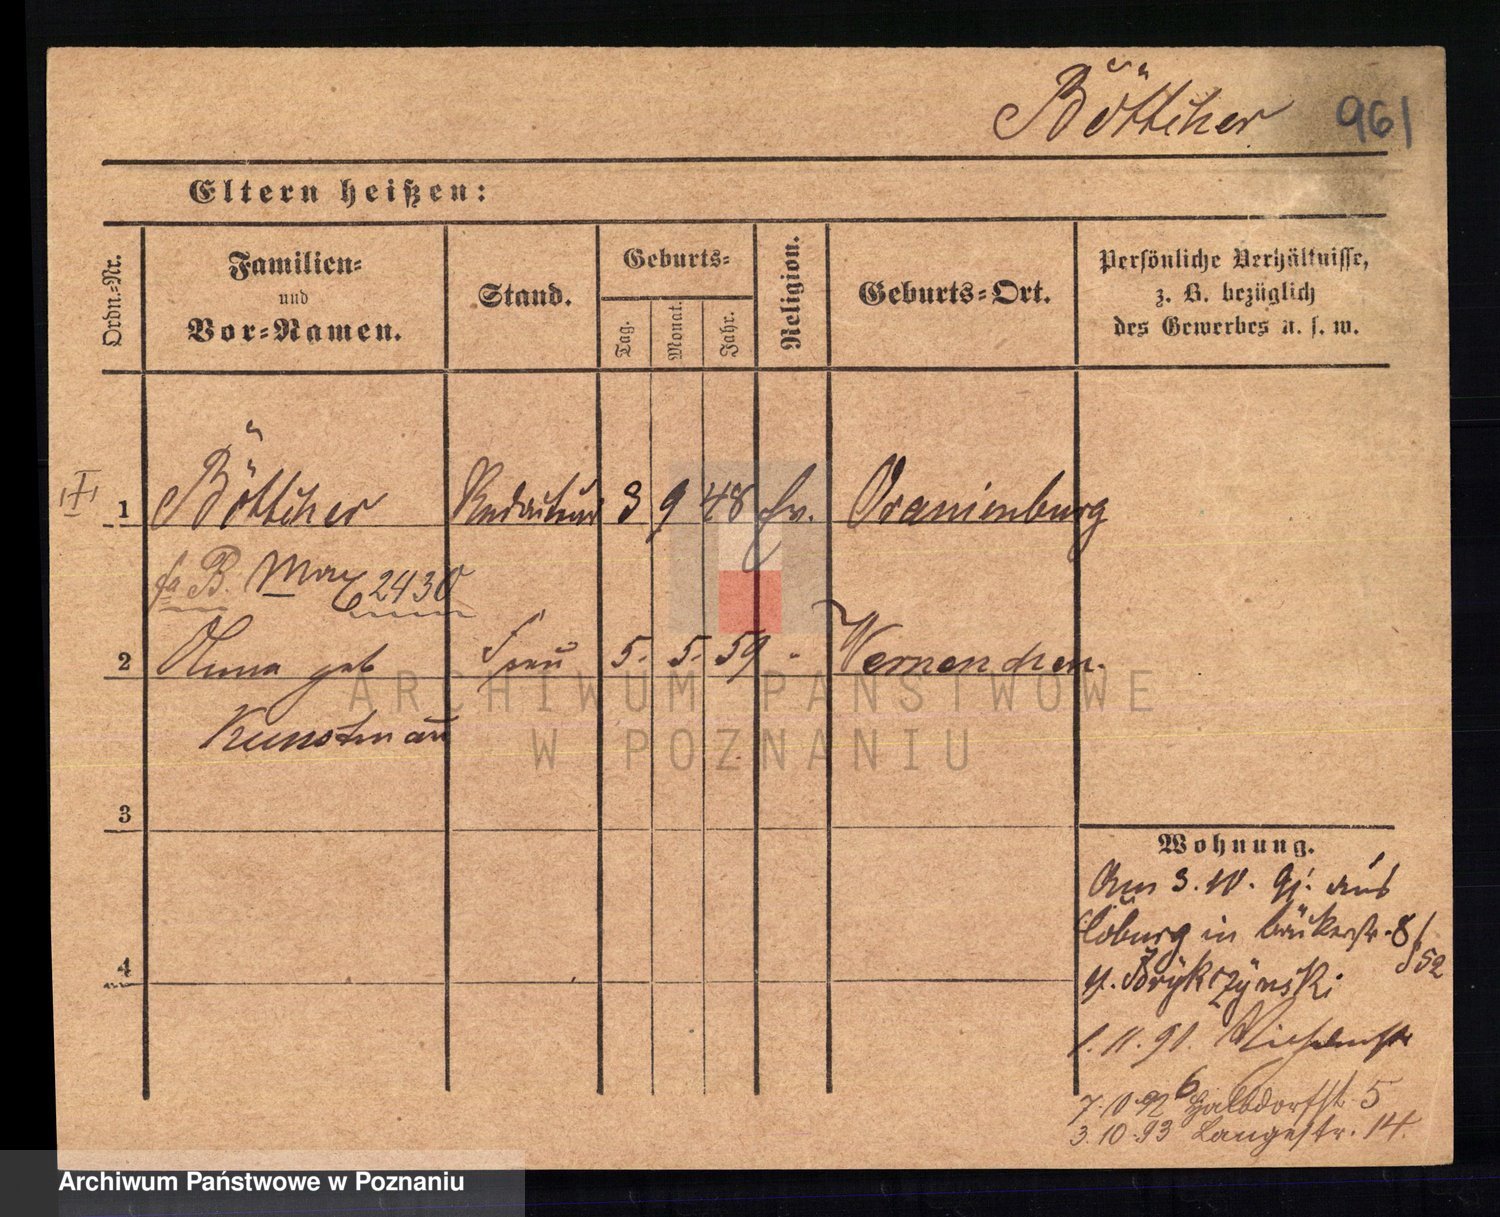 Böttcher 961
Eltern heißen:
Ordn.-Nr.
Familien-
und
Vor-Namen.
Stand.
Geburts-
Tag.
Monat.
Jahr.
Religion.
Geburts-Ort.
Persönliche Verhältnisse,
z. B. bezüglich
des Gewerbes u. s. w.
1 Böttcher Redacteur 3 9 48 Ev. Oranienburg
B. Max 2430
2 Anna geb Frau 5. 5. 59 " Wernenchen.
Kunstmañ
3
4
Wohnung.
Am 3. 10. 91. aus
in Bäckerstr. 8/
§ 52
1. 11. 91.
7. 10. 92 Halbdorfstr. 5
3. 10. 93 Langestr. 14.
ARCHIWUM PAŃSTWOWE
W POZNANIU
Archiwum Państwowe w Poznaniu